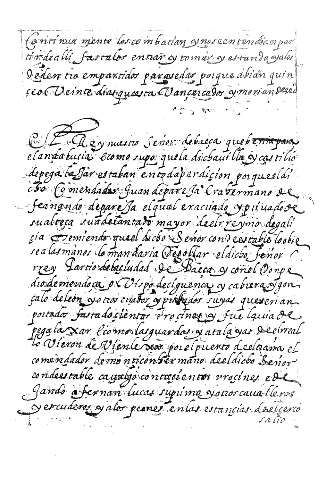 Continuamente los combatian y no se por
tir de alli fasta los entrar y tomar y estando ya los
de dentro en partidos para se dar porque abian quin
ce o Veinte dias que estavan cercados y morian de sed
El Rey nuestro Señor de baeça que benia para
el andalucia E como supo que la dicha villa y castillo
de pegalajar estaban en toda perdicion porque el di
cho Comendador Juan de pareja Era hermano de
fernando de pareja el qual era criado y privado de
su alteça su adelantado mayor de el rreyno de gali
çia temiendo que el dicho Señor condestable lo obie
se a las manos lo mandaria degollar el dicho Señor
rrey partio de la ciudad de Baeça y con el Don pe
dro de mendoça obispo de siguença y cabrera y gon
çalo de leon y otros criados y privados suyos que serian
por todos fasta docientos Rocines y fue la via de
pegalaxar E como las guardas y atalayas de el real
lo Vieron por el puerto el
comendador de montiçon hermano de el dicho Señor
condestable cavalgo con treçientos rrocines e de
jando a fernan lucas su primo y otros cavalleros
y escuderos y a los peones en las estancias de el cerco
salio